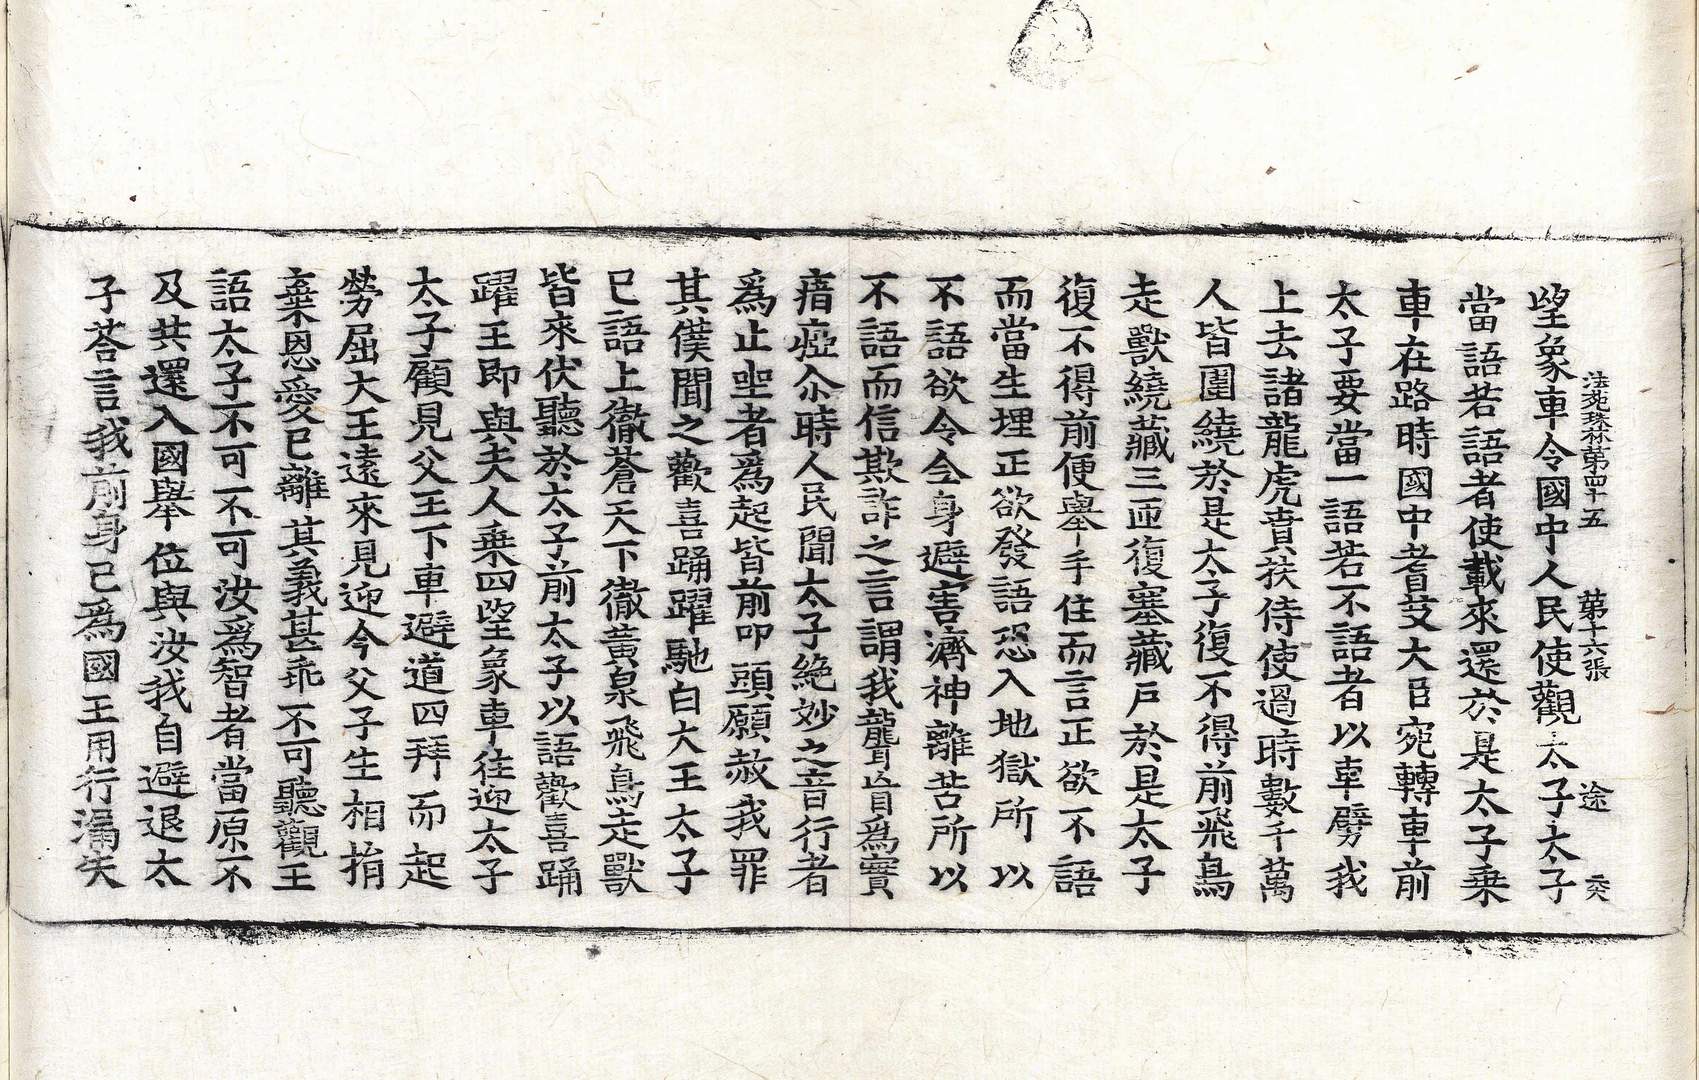 法苑珠林第四十五 第十六張 途
望象車令國中人民使觀太子太子
當語若語者使載來還於是太子乘
車在路時國中耆艾大臣宛轉車前
太子要當一語若不語者以車轢我
上去諸龍虎賁扶侍使過時數千萬
人皆圍繞於是太子復不得前飛鳥
走獸繞藏三匝復塞藏戶於是太子
復不得前便舉手住而言正欲不語
而當生埋正欲發語恐入地獄所以
不語欲令全身避害濟神離苦所以
不語而信欺詐之言謂我聾盲爲實
瘖瘂尒時人民聞太子絶妙之音行者
爲止坐者爲起皆前叩頭願赦我罪
其僕聞之歡喜踊躍馳白大王太子
已語上徹蒼天下徹黃泉飛鳥走獸
皆來伏聽於太子前太子以語歡喜踊
躍王即與夫人乘四望象車往迎太子
太子顧見父王下車避道四拜而起
勞屈大王遠來見迎今父子生相捐
棄恩愛已離其義甚乖不可聽觀王
語太子不可不可汝爲智者當原不
及共還入國舉位與汝我自避退太
子荅言我前身已爲國王用行漏失